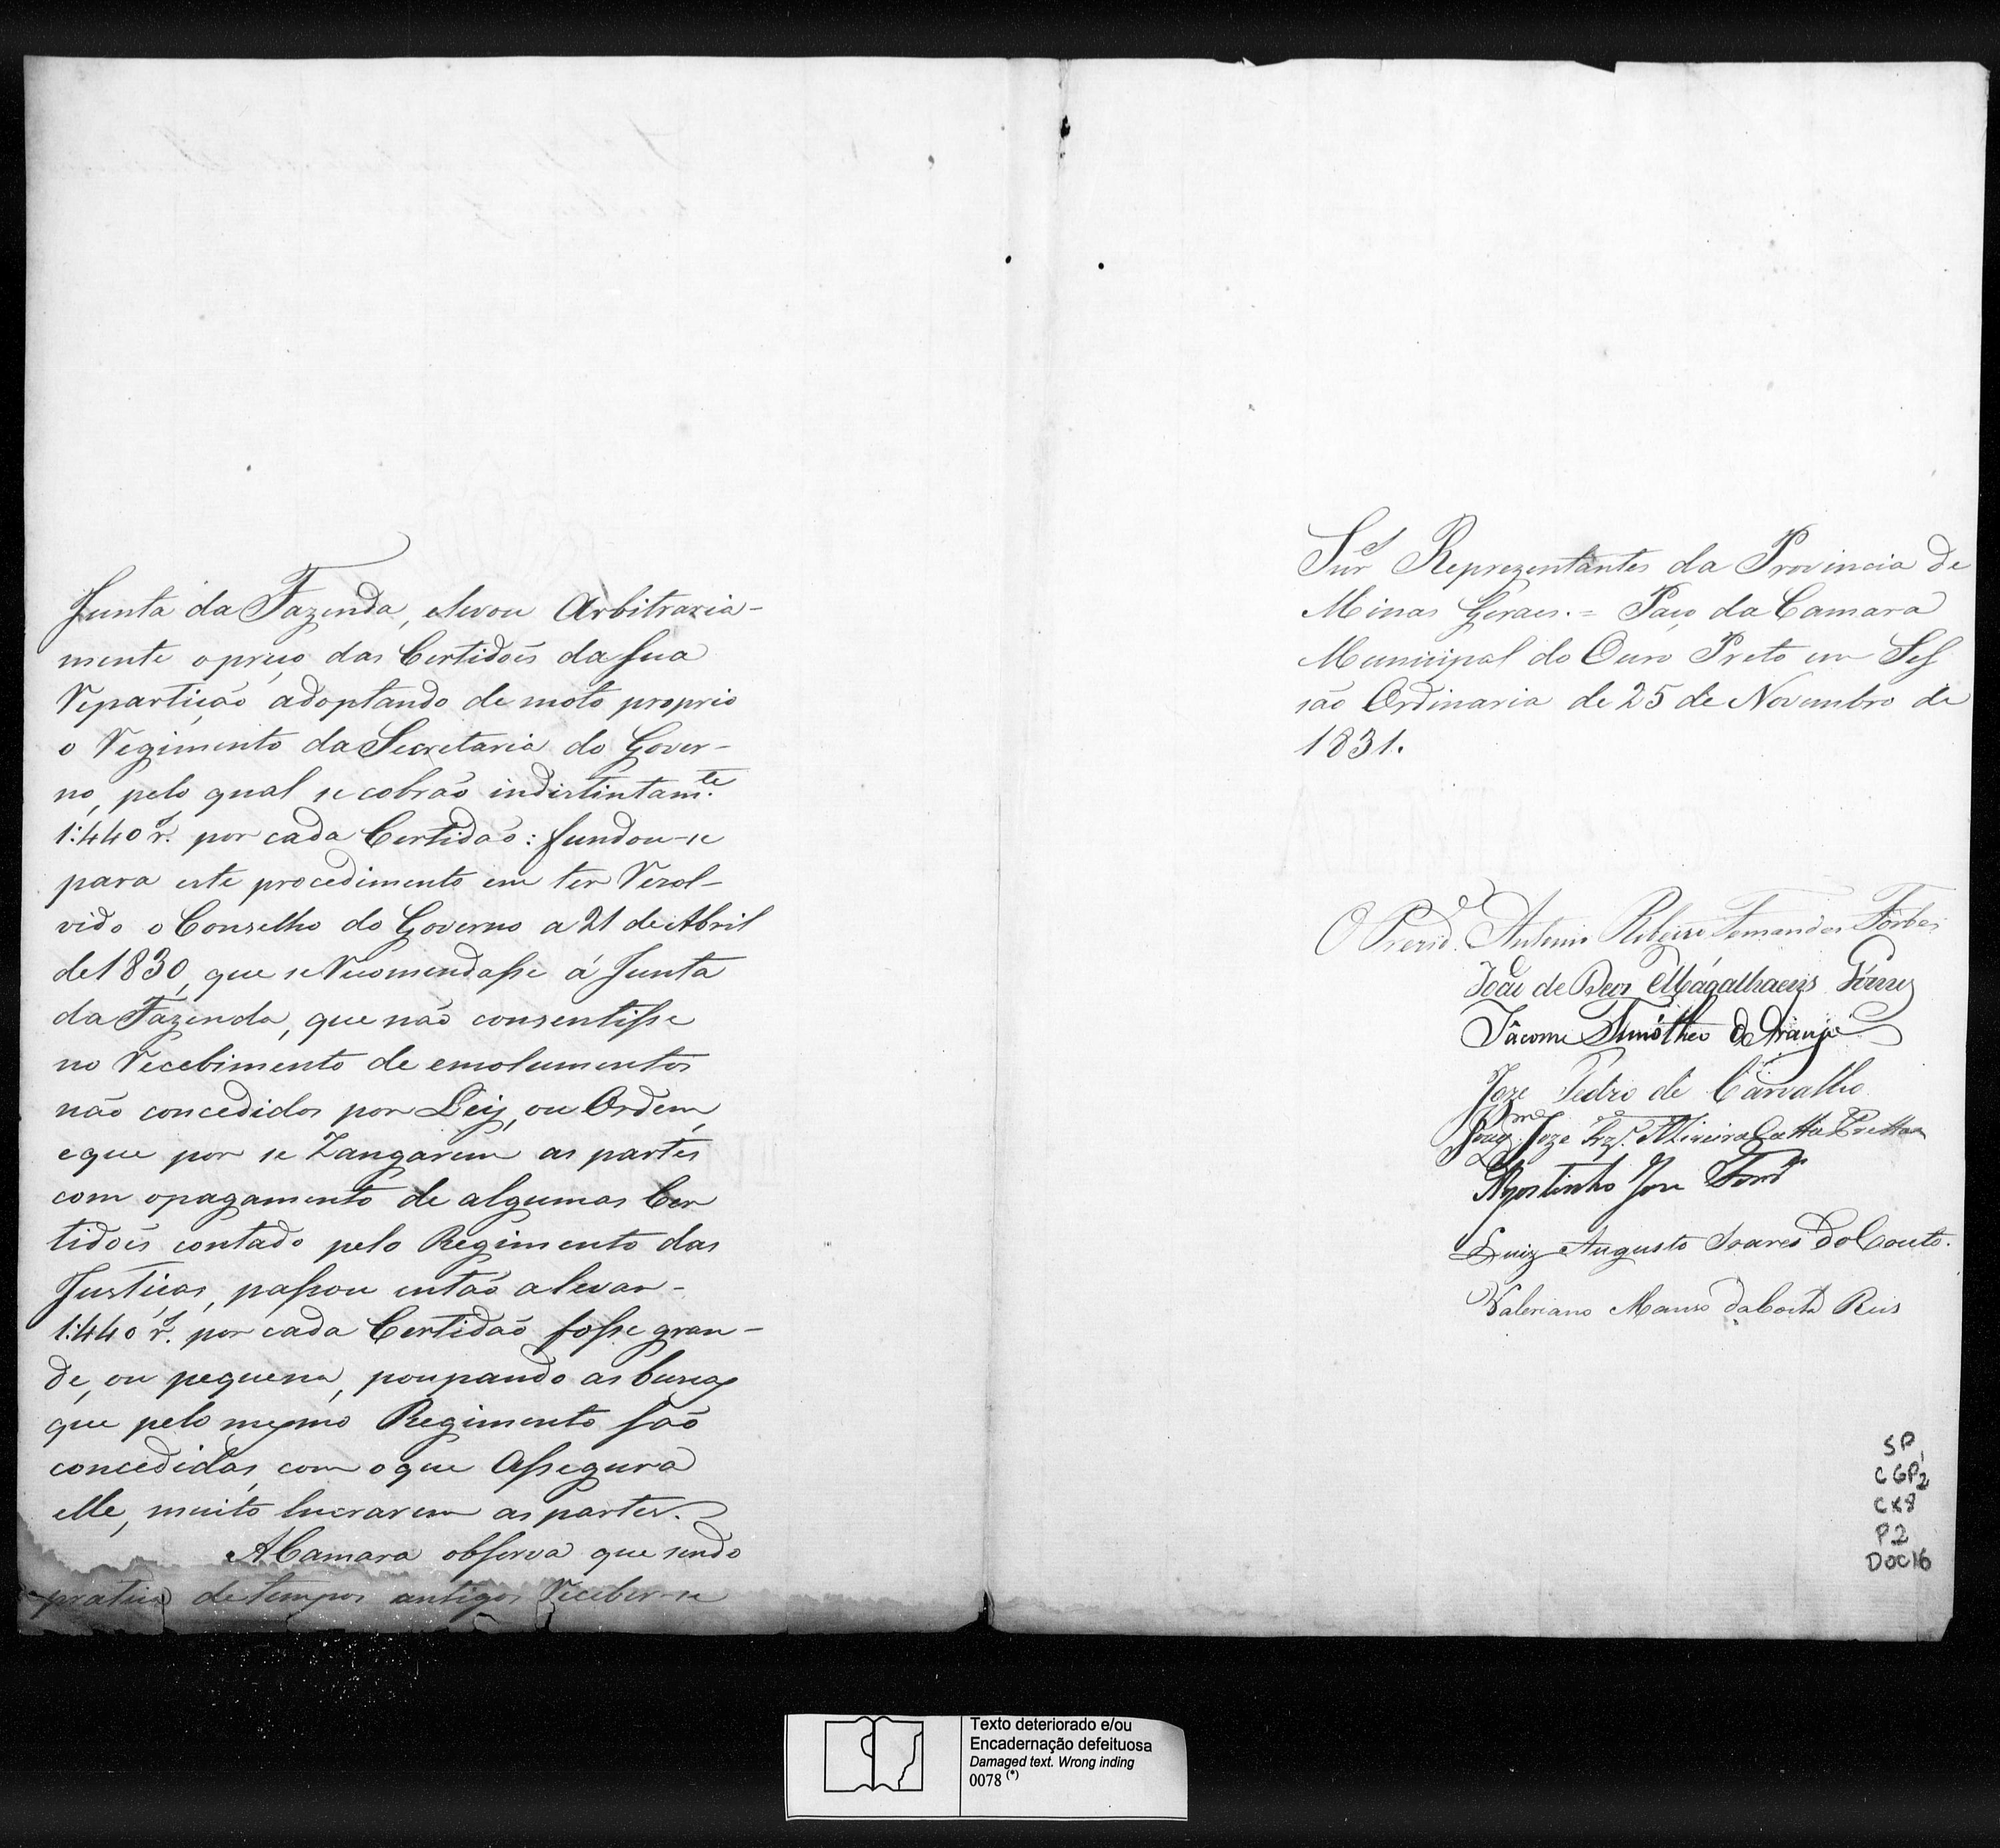 Junta da Fazenda, elevou Arbitraria-
mente o preço das Certidoẽs da sua
Repartição adoptando de moto proprio
o Regimento da Secretaria do Gover-
no, pelo qual se cobrão indistintam.te
1:440 r.s por cada Certidão: fundou-se
para este procedimento em ter Resol-
vido o Conselho do Governo a 21 de Abril
de 1830, que se Recomendasse á Junta
da Fazenda, que não consentisse
no Recebimento de emolumentos
não concedidos por Ley, ou Ordem,
e que por se Zangarem as partes
com o pagamento de algumas Cer
tidoẽs contado pelo Regimento das
Justiças, passou então a levar-
1:440 r.s por cada Certidão fosse gran-
de, ou pequena, poupando as buscas
que pelo mesmo Regimento são
concedidas, com o que Assegura
elle, muito lucrarem as partes.
A Camara observa que sendo
pratica de tempos antigos Receber-se
Snr.es Reprezentantes da Provincia de
Minas Geraes. = Paço da Camara
Municipal do Ouro Preto em Ses
são Ordinaria de 25 de Novembro de
1831.
O Prezid.e Antonio Ribeiro Fernandes Forbes
João de Deos Magalhaens Gomes
Jâcome Timótheo de Araujo
Joze Pedro de Carvalho
Joze Teixeira Catta Pretta
Agostinho Joze
Luiz Augusto Soares do Couto.
Valeriano Manso da Costa Reis
SP
CGP2
CX8
P2
DOC16
Texto deteriorado e/ou
Encadernação defeituosa
Damaged text. Wrong inding
0078 (*)